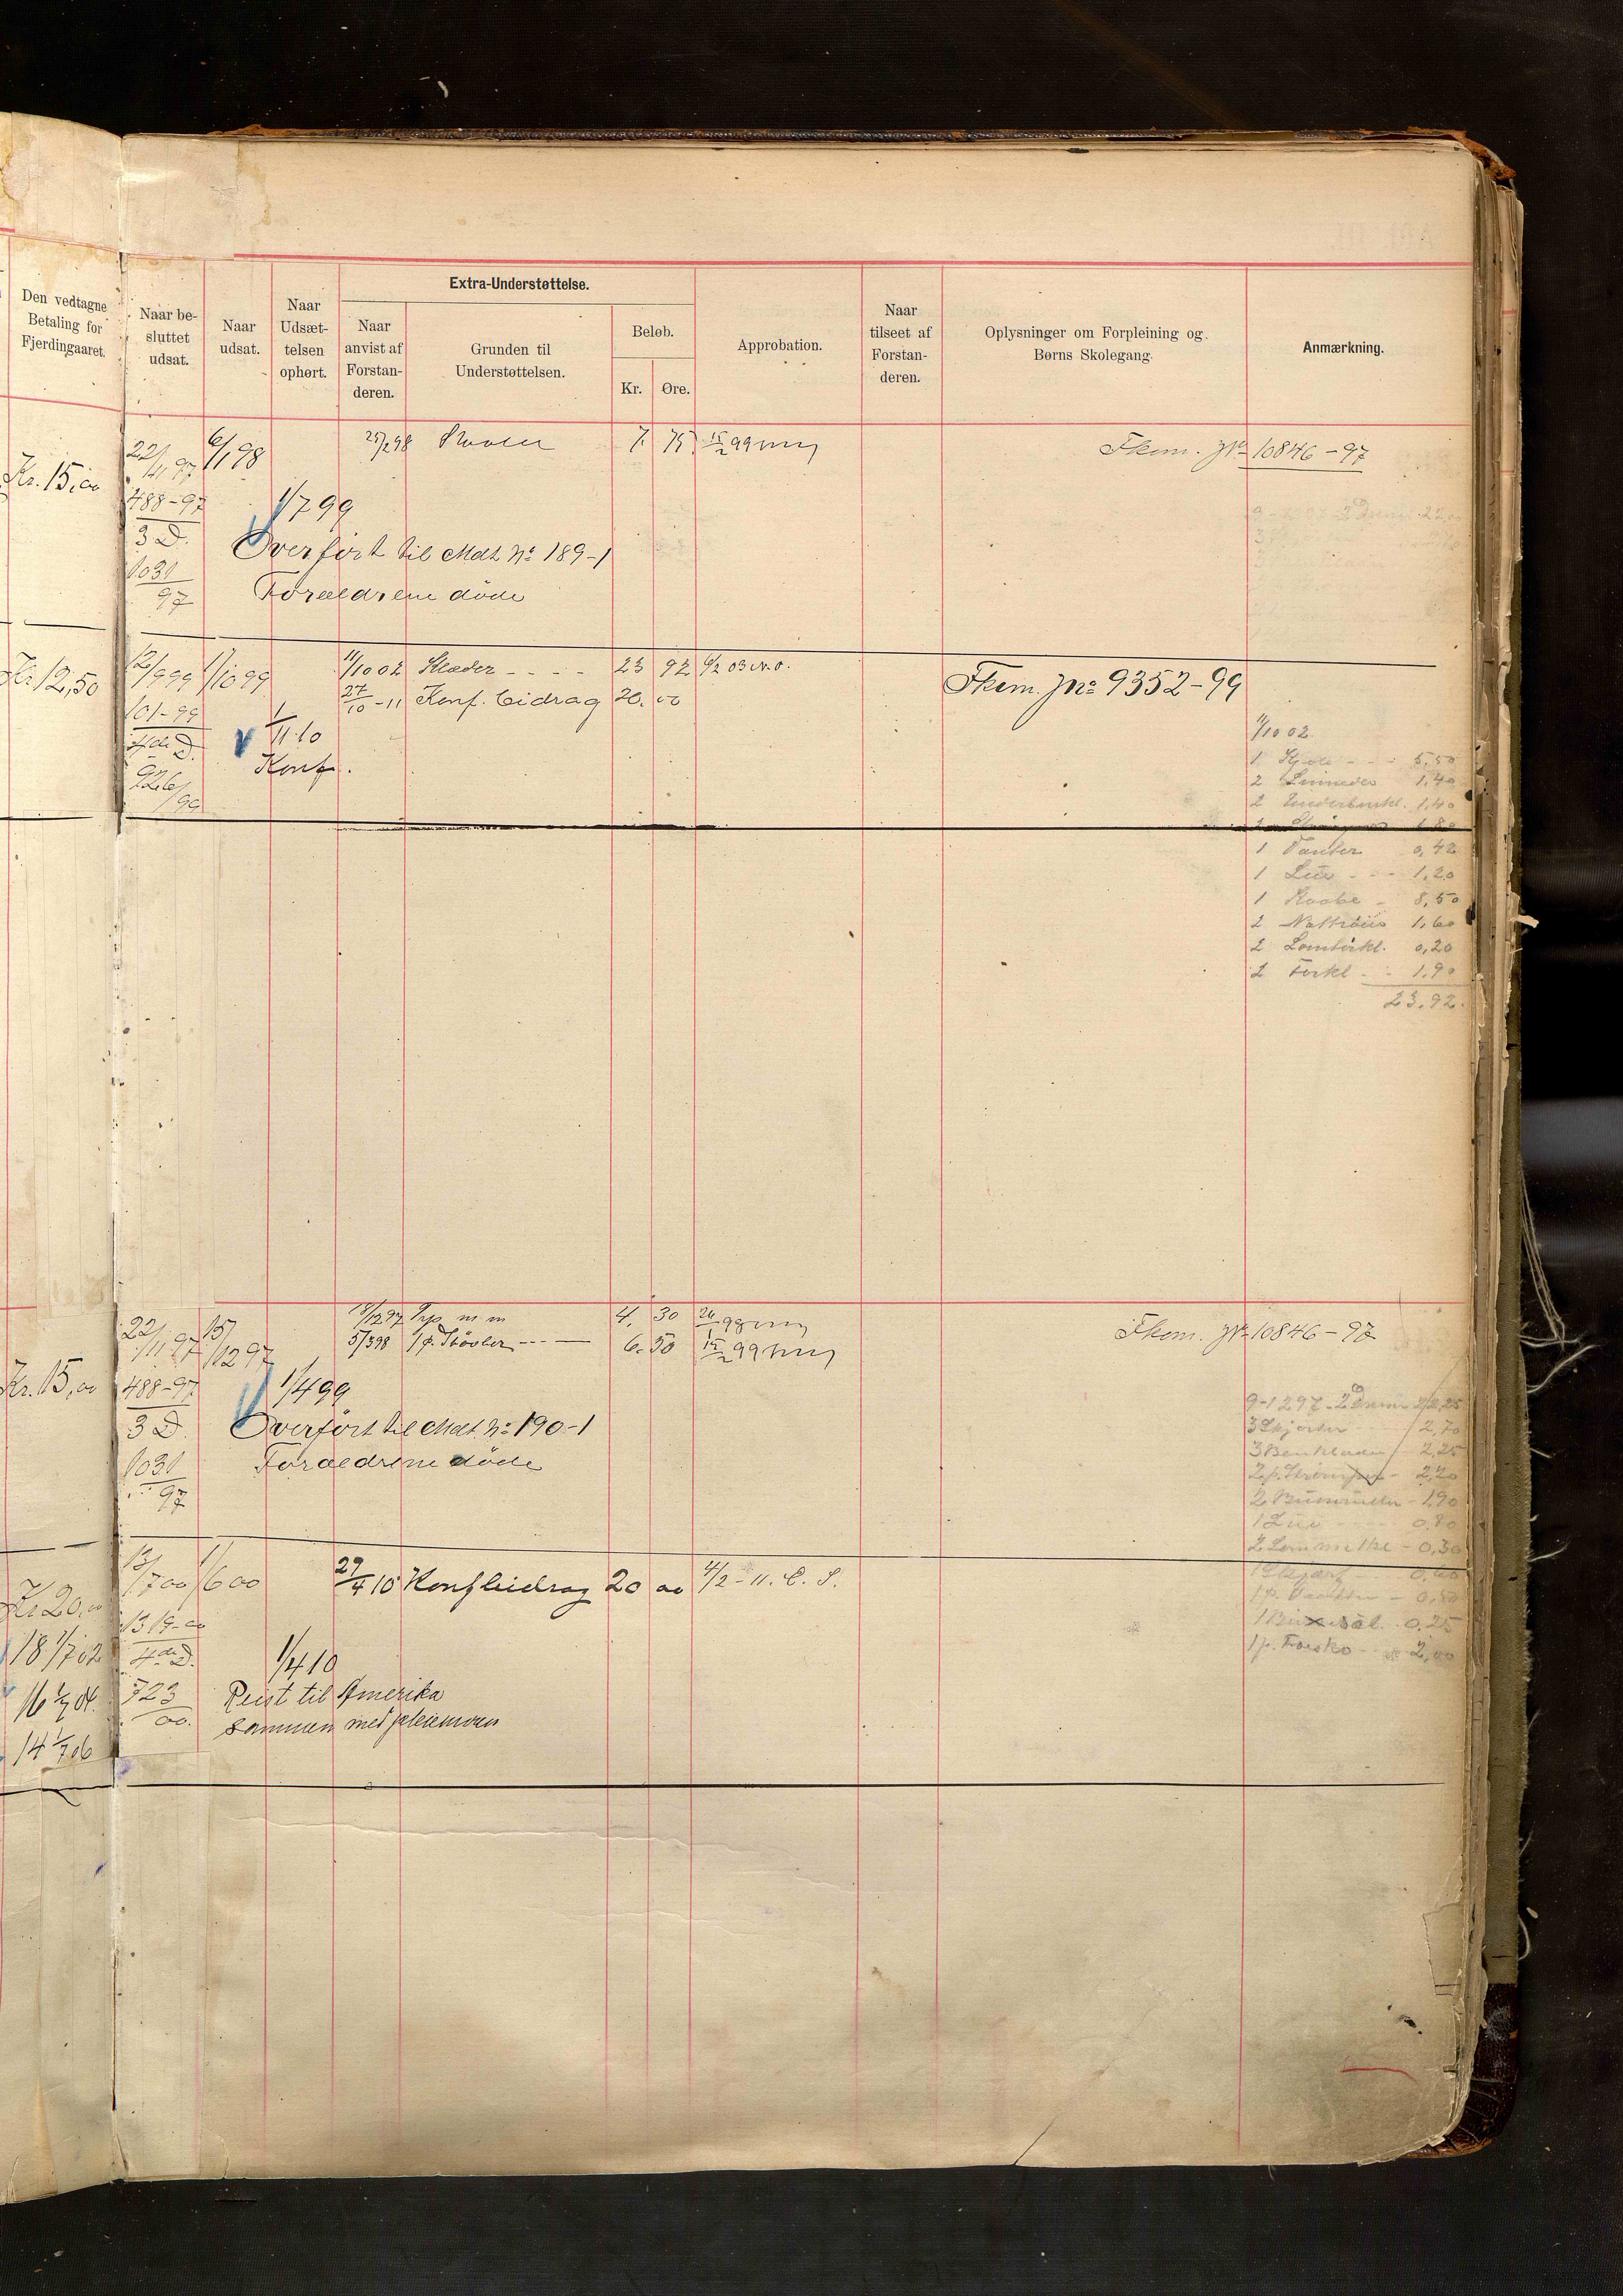 Den vedtagne
Betaling for
Fjerdingaaret.
Naar be-
sluttet
udsat.
Naar
udsat.
Naar
Udsæt-
telsen
ophørt.
Extra-Understøttelse.
Naar
anvist af
Forstan-
deren.
Grunden til
Understøttelsen.
Beløb.
Kr.
Øre.
Approbation.
Naar
tilseet af
Forstan-
deren.
Oplysninger om Forpleining og
Børns Skolegang.
Anmærkning.
Kr. 15,00
22/11 97
488-97
3 D.
1031
97
6/1 98
25/2 98
7. 75. 15/2 99
Fkem. J№ 10846-97
1/7 99
Overført til Mat № 189-1
Forældrene døde
Kr 12,50
12/9 99 1/10 99
101-99
4de D.
926/99
11/10 02 Klæder - - - - 23 92 6/2 03
27/10-11 Konf. bidrag 20. 00
Fkem. J№ 9352-99
1/11 10
Konf.
11/10 02.
1 Kjole - - - 5,50
2 Linneder 1,40
2 Underbenkl. 1,40
1,80
1 Vanter 0,42
1 Lue - - - 1,20
1 Kaabe - 8,50
2 Nattrøie 1,60
2 Lomtørkl. 0,20
2 Forkl - - 1.90
23.92.
Kr. 15,00
22/11 97
488-97
3 D.
1031
97
15/12 97
18/12 97 m m 4, 30 26 98
5/3 98 1 p. Støvler - - - 6. 50 15/2 99
Fkem. J№ 10846-97
1/4 99
Overført til Mat. № 190-1
Forældrene døde
9-12 97
3 Skjorter 2,70
3 Benklæder 2,25
2 p. Strømper - 2,20
1,90
1 Lue 0.80
0,30
Kr 20,00
18 1/7 02
16 1/7 04.
14 1/7 06
13/7 00 1/6 00
1319-00
4de D.
723
00.
29/4 10 Konfbidrag 20 00 4/2-11. C. S.
1/4 10
Reist til Amerika
sammen med pleiemoren
0,25
2,00